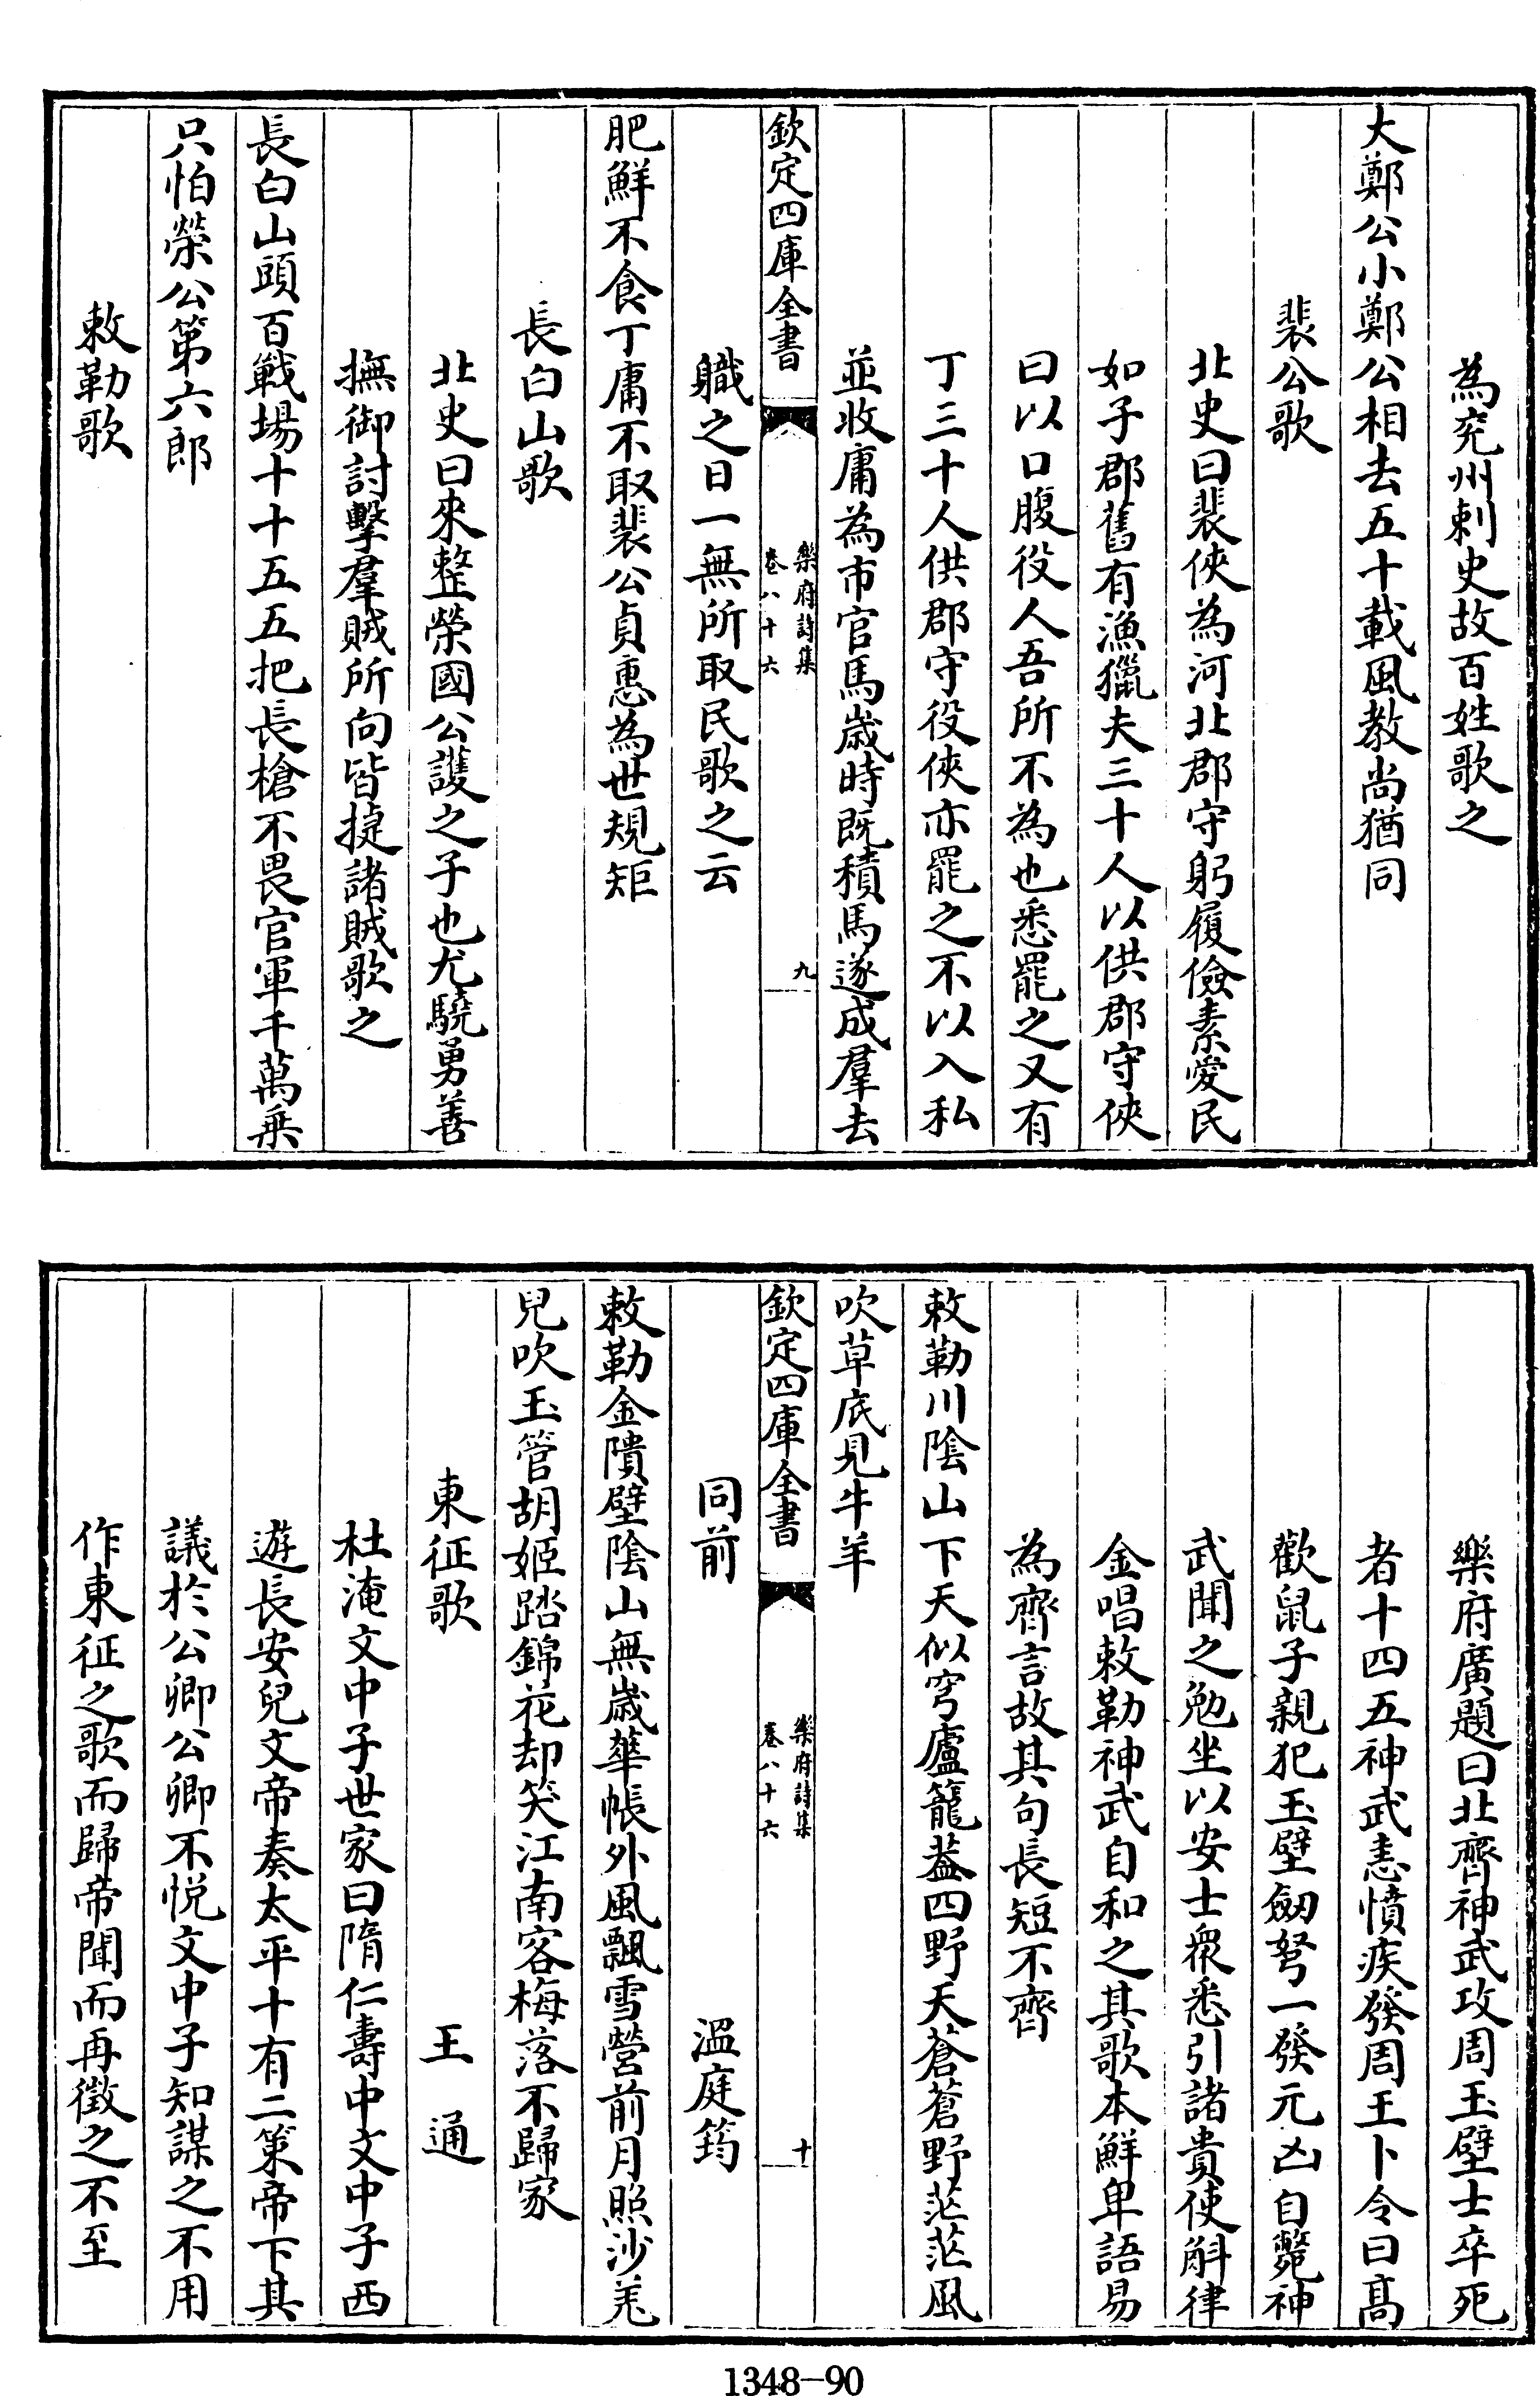 為兖州刺史故百姓歌之
大鄭公小鄭公相去五十載風教尚猶同
裴公歌
北史曰裴俠為河北郡守躬履儉素愛民
如子郡舊有漁獵夫三十人以供郡守俠
曰以口腹役人吾所不為也悉罷之又有
丁三十人供郡守役俠亦罷之不以入私
並收庸為市官馬歳時既積馬遂成羣去
欽定四庫全書
樂府詩集
卷八十六
九
職之日一無所取民歌之云
肥鮮不食丁庸不取裴公貞惠為世規矩
長白山歌
北史曰來整榮國公護之子也尤驍勇善
撫御討擊羣賊所向皆㨗諸賊歌之
長白山頭百戰場十十五五把長槍不畏官軍千萬乗
只怕榮公第六郎
敕勒歌
樂府廣題曰北齊神武攻周玉壁士卒死
者十四五神武恚憤疾發周王下令曰髙
歡鼠子親犯玉壁劒弩一發元凶自斃神
武聞之勉坐以安士衆悉引諸貴使斛律
金唱敕勒神武自和之其歌本鮮卑語易
為齊言故其句長短不齊
敕勒川陰山下天似穹廬籠葢四野天蒼蒼野茫茫風
吹草底見牛羊
欽定四庫全書
樂府詩集
卷八十六
十
同前 温庭筠
敕勒金隤壁陰山無歳華帳外風飄雪營前月照沙羌
兒吹玉管胡姬踏錦花却笑江南客梅落不歸家
東征歌 王通
杜淹文中子世家曰隋仁壽中文中子西
遊長安見文帝奏太平十有二策帝下其
議於公卿公卿不悦文中子知謀之不用
作東征之歌而歸帝聞而再徵之不至
1348-90